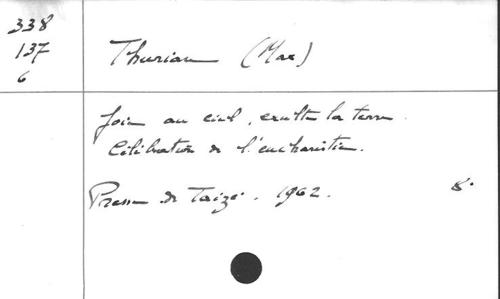 338
137
6
Thurian (Max)
Joie au ciel, exulte la terre.
Célébration de l'eucharistie.
Presses de Taizé. 1962. 8°